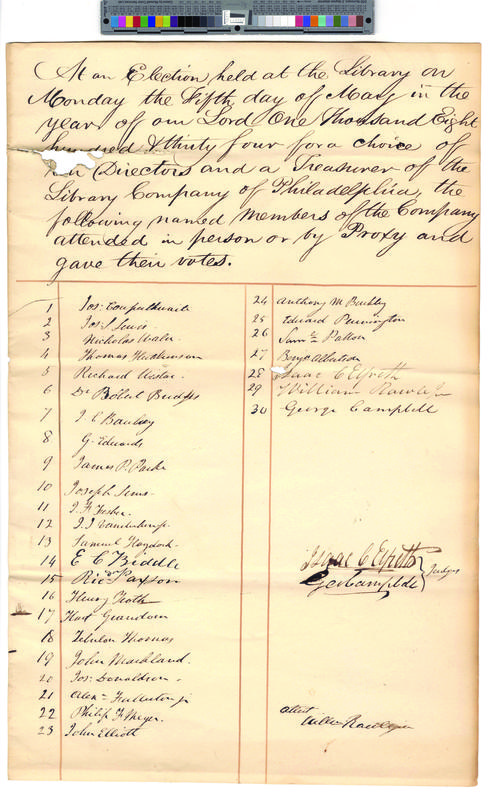 At an Election held at the Library on
Monday the Fifth day of May in the
year of our Lord One thousand Eight
hundred & thirty four for a choice of
Directors and a Treasurer of the
Library Company of Philadelphia, the
following named Members of the Company
attended in person or by Proxy and
gave their votes.
1 Jos: Cowperthwait
2 Jos: S. Lewis
3 Nicholas Waln
4 Thomas Hutchinson
5 Richard Wistar
6 Dr Robert Bridges
7 J. C.
8 G. Edwards
9 James P. Parke
10 Joseph Sims
11 J. F. Fisher
12 J. J. Vanderkemp
13 Samuel Haydock
14 E C Biddle
15 Paxson
16 Henry Troth
17 Hart Grandom
18 Zebulon Thomas
19 John Markland
20 Jos: Donaldson
21 Alexr Fullerton jr
22 Philip F. Mayer
23 John Elliott
24 Anthony M Buckley
25 Edward Pennington
26 Saml Patton
27
28 Isaac C Elfreth
29 William Rawle Jr
30 George Campbell
Isaac C Elfreth
Geo Campbell } Judges
attest
William Rawle jr